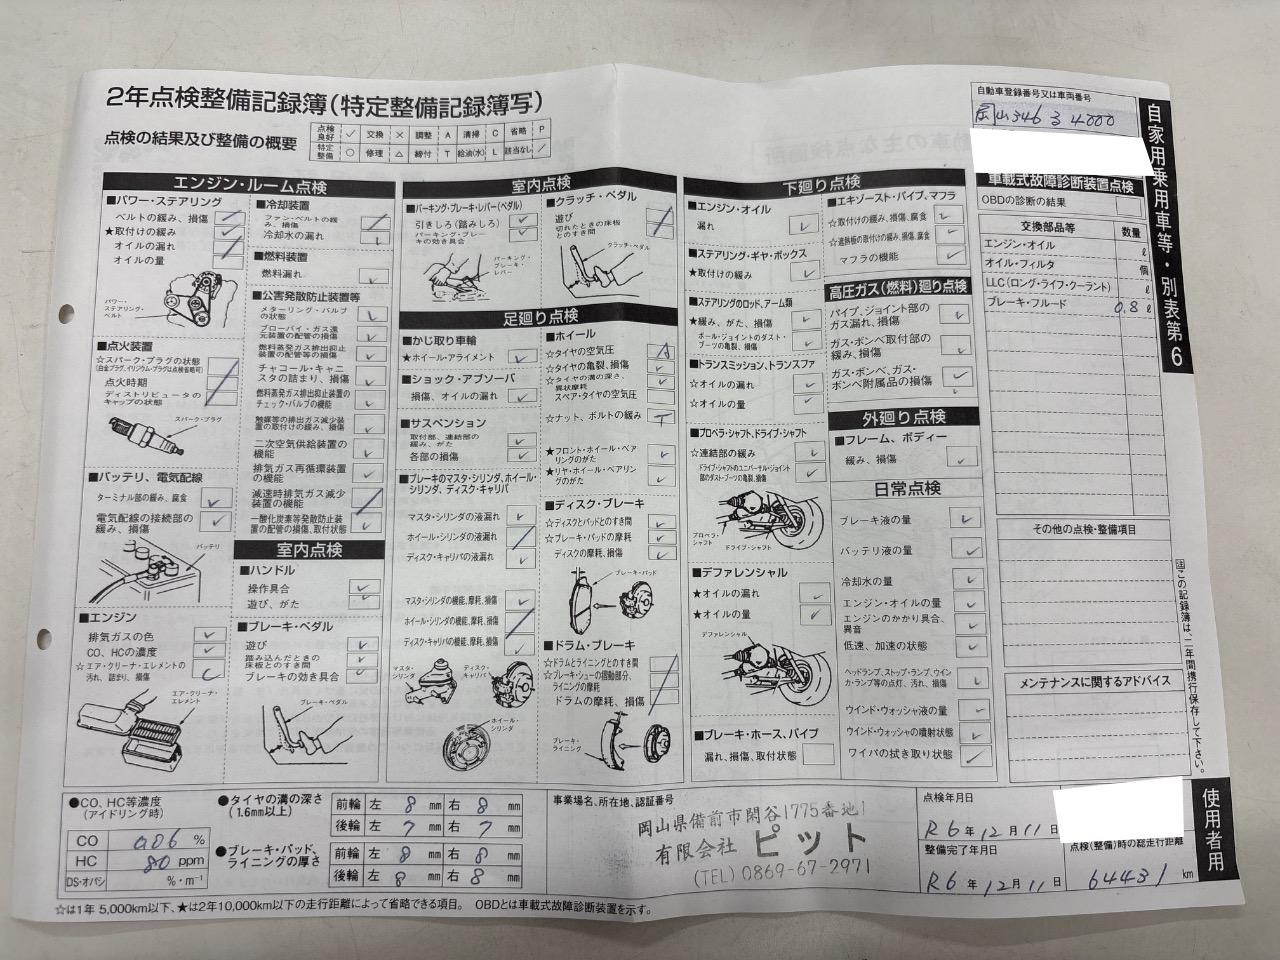 2年点検整備記録簿(特定整備記録簿写)
点検の結果及び整備の概要
点検良好 ✓ 交換 × 調整 A 清掃 C 省略 P
特定整備 ○ 修理 △ 締付 T 給油(水) L 該当なし /
自動車登録番号又は車両番号
岡山346 3 4000
自家用乗用車等・別表第6
エンジン・ルーム点検
■パワー・ステアリング
ベルトの緩み、損傷 /
★取付けの緩み
オイルの漏れ
オイルの量
パワー・ステアリング・ベルト
■点火装置
☆スパーク・プラグの状態
(白金プラグ、イリジウム・プラグは点検省略可)
点火時期
ディストリビュータのキャップの状態
スパーク・プラグ
■バッテリ、電気配線
ターミナル部の緩み、腐食 ✓
電気配線の接続部の緩み、損傷 ✓
バッテリ
■エンジン
排気ガスの色 ✓
CO、HCの濃度 ✓
☆エア・クリーナ・エレメントの汚れ、詰まり、損傷 C
エア・クリーナ・エレメント
■冷却装置
ファン・ベルトの緩み、損傷 /
冷却水の漏れ ✓
■燃料装置
燃料漏れ ✓
■公害発散防止装置等
メターリング・バルブの状態 ✓
ブローバイ・ガス還元装置の配管の損傷 ✓
燃料蒸発ガス排出抑止装置の配管等の損傷 ✓
チャコール・キャニスタの詰まり、損傷 ✓
燃料蒸発ガス排出抑止装置のチェック・バルブの機能 ✓
触媒等の排出ガス減少装置の取付けの緩み、損傷 ✓
二次空気供給装置の機能 ✓
排気ガス再循環装置の機能 ✓
減速時排気ガス減少装置の機能 /
一酸化炭素等発散防止装置の配管の損傷、取付状態 ✓
室内点検
■ハンドル
操作具合 ✓
遊び、がた ✓
■ブレーキ・ペダル
遊び ✓
踏み込んだときの床板とのすき間 ✓
ブレーキの効き具合 ✓
ブレーキ・ペダル
室内点検
■パーキング・ブレーキ・レバー(ペダル)
引きしろ(踏みしろ) ✓
パーキング・ブレーキの効き具合 ✓
パーキング・ブレーキ・レバー
■クラッチ・ペダル
遊び
切れたときの床板とのすき間
クラッチ・ペダル
足廻り点検
■かじ取り車輪
★ホイール・アライメント ✓
■ショック・アブソーバ
損傷、オイルの漏れ ✓
■サスペンション
取付部、連結部の緩み、がた ✓
各部の損傷 ✓
■ブレーキのマスタ・シリンダ、ホイール・シリンダ、ディスク・キャリパ
マスタ・シリンダの液漏れ ✓
ホイール・シリンダの液漏れ /
ディスク・キャリパの液漏れ ✓
マスタ・シリンダの機能、摩耗、損傷 ✓
ホイール・シリンダの機能、摩耗、損傷 /
ディスク・キャリパの機能、摩耗、損傷 ✓
マスタ・シリンダ
ディスク・キャリパ
ホイール・シリンダ
■ホイール
☆タイヤの空気圧 A
☆タイヤの亀裂、損傷 ✓
☆タイヤの溝の深さ、異状摩耗 ✓
スペア・タイヤの空気圧
☆ナット、ボルトの緩み T
★フロント・ホイール・ベアリングのがた ✓
★リヤ・ホイール・ベアリングのがた ✓
■ディスク・ブレーキ
☆ディスクとパッドとのすき間 ✓
☆ブレーキ・パッドの摩耗 ✓
ディスクの摩耗、損傷 ✓
ブレーキ・パッド
■ドラム・ブレーキ
☆ドラムとライニングとのすき間
☆ブレーキ・シューの摺動部分、ライニングの摩耗
ドラムの摩耗、損傷
ブレーキ・ライニング
下廻り点検
■エンジン・オイル
漏れ ✓
■ステアリング・ギヤ・ボックス
★取付けの緩み ✓
■ステアリングのロッド、アーム類
★緩み、がた、損傷 ✓
ボール・ジョイントのダスト・ブーツの亀裂、損傷 ✓
■トランスミッション、トランスファ
☆オイルの漏れ ✓
☆オイルの量 ✓
■プロペラ・シャフト、ドライブ・シャフト
☆連結部の緩み ✓
ドライブ・シャフトのユニバーサル・ジョイント部のダスト・ブーツの亀裂、損傷 ✓
プロペラ・シャフト
ドライブ・シャフト
■デファレンシャル
★オイルの漏れ ✓
★オイルの量 ✓
デファレンシャル
■ブレーキ・ホース、パイプ
漏れ、損傷、取付状態
■エキゾースト・パイプ、マフラ
☆取付けの緩み、損傷、腐食 ✓
☆遮熱板の取付けの緩み、損傷、腐食 ✓
マフラの機能 ✓
高圧ガス(燃料)廻り点検
パイプ、ジョイント部のガス漏れ、損傷 ✓
ガス・ボンベ取付部の緩み、損傷 ✓
ガス・ボンベ、ガス・ボンベ附属品の損傷 ✓
外廻り点検
■フレーム、ボディー
緩み、損傷 ✓
日常点検
ブレーキ液の量 ✓
バッテリ液の量 ✓
冷却水の量 ✓
エンジン・オイルの量 ✓
エンジンのかかり具合、異音 ✓
低速、加速の状態 ✓
ヘッドランプ、ストップ・ランプ、ウインカ・ランプ等の点灯、汚れ、損傷 ✓
ウインド・ウォッシャ液の量 ✓
ウインド・ウォッシャの噴射状態 ✓
ワイパの拭き取り状態 ✓
車載式故障診断装置点検
OBDの診断の結果
交換部品等 数量
エンジン・オイル ℓ
オイル・フィルタ 個
LLC(ロング・ライフ・クーラント) ℓ
ブレーキ・フルード 0.8 ℓ
その他の点検・整備項目
メンテナンスに関するアドバイス
注この記録簿は二年間携行保存して下さい。
●CO、HC等濃度
(アイドリング時)
CO 0.06 %
HC 80 ppm
DS・オパシ %・m⁻¹
●タイヤの溝の深さ
(1.6mm以上)
前輪 左 8 mm 右 8 mm
後輪 左 7 mm 右 7 mm
●ブレーキ・パッド、ライニングの厚さ
前輪 左 8 mm 右 8 mm
後輪 左 8 mm 右 8 mm
事業場名、所在地、認証番号
岡山県備前市閑谷1775番地1
有限会社 ピット
(TEL) 0869-67-2971
点検年月日
R6年12月11日
整備完了年月日
R6年12月11日
点検(整備)時の総走行距離
64431 km
使用者用
☆は1年 5,000km以下、★は2年10,000km以下の走行距離によって省略できる項目。 OBDとは車載式故障診断装置を示す。